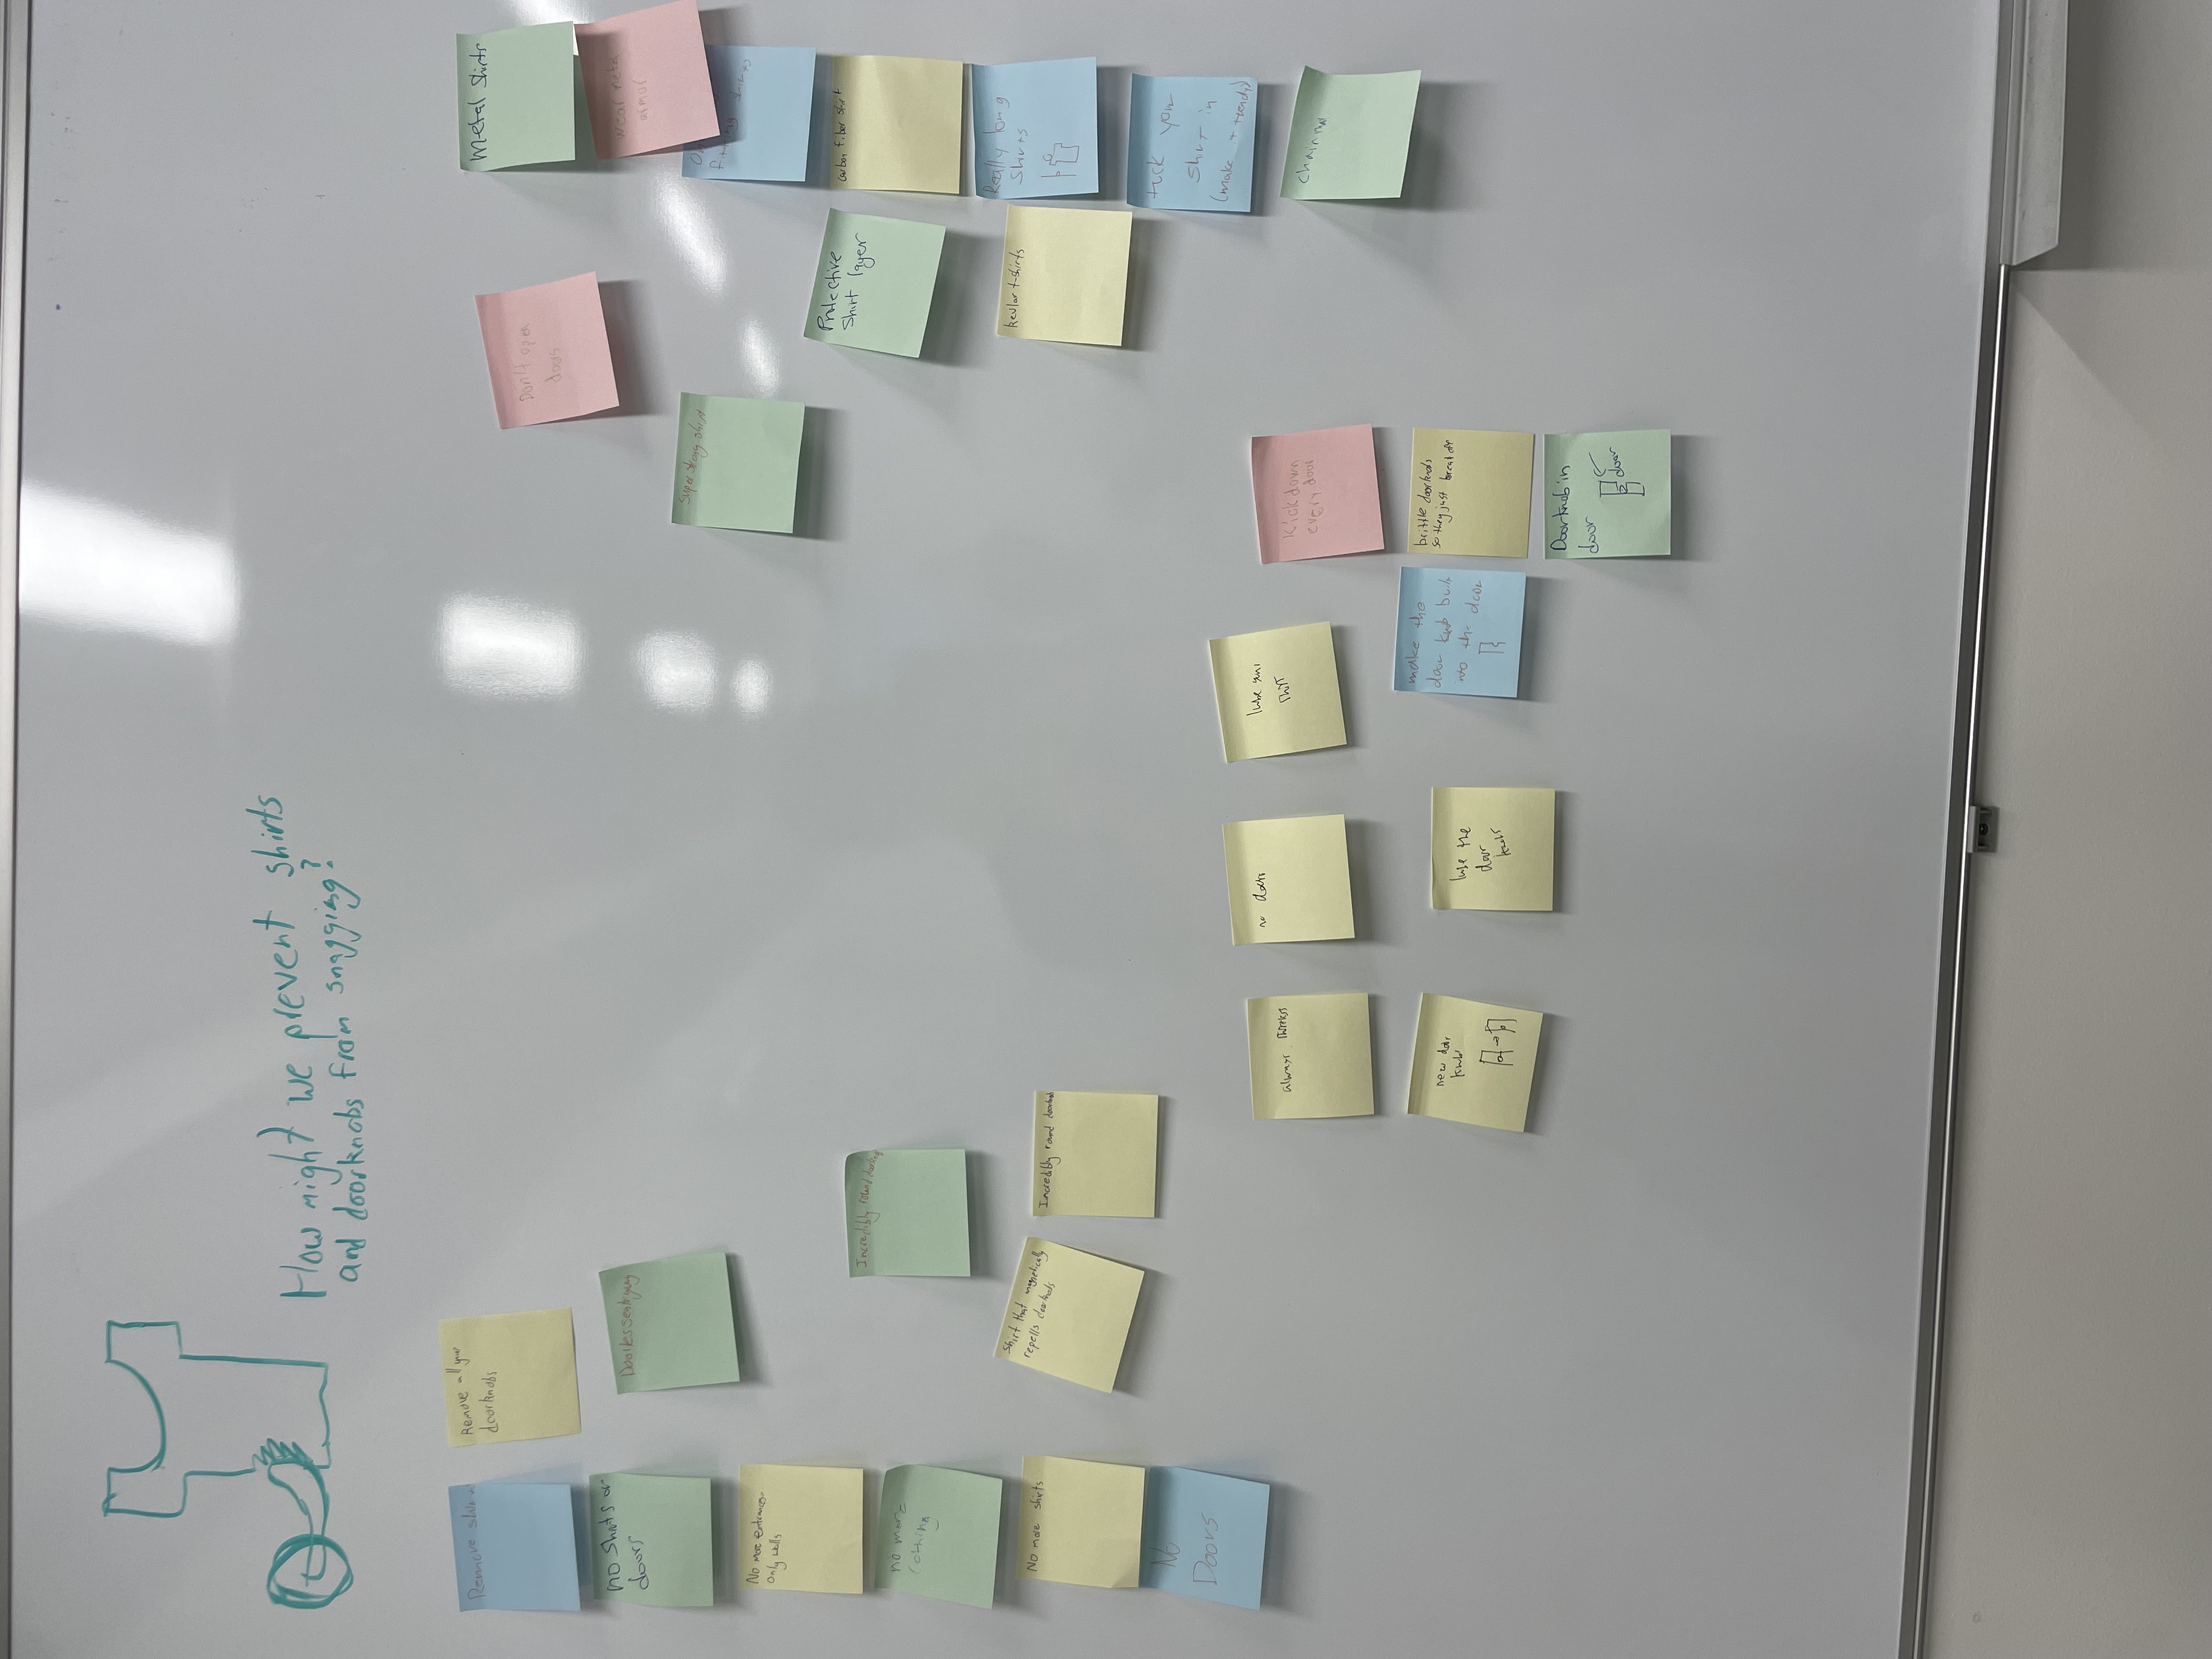 How might we prevent shirts
and doorknobs from snagging?
Remove
Remove all your
doorknobs
no shirts or
doors
No more entrances-
only walls
no more
No more shirts
No
Doors
Incredibly round
Shirt that magnetically
repells doorknobs
Incredibly round doorknob
always shirtless
no doors
lube your
shirt
Kick down
every door
new door
knob
lube the
door
knobs
make the
door knob built
into the door
brittle doorknobs
so they just break off
Doorknob in
door
door
Don't open
doors
Metal Shirts
wear metal
armor
Super strong shirt
fitting shirts
Protective
Shirt layer
carbon fiber shirt
kevlar t-shirts
Really long
Shirts
tuck your
shirt in
(make it trendy)